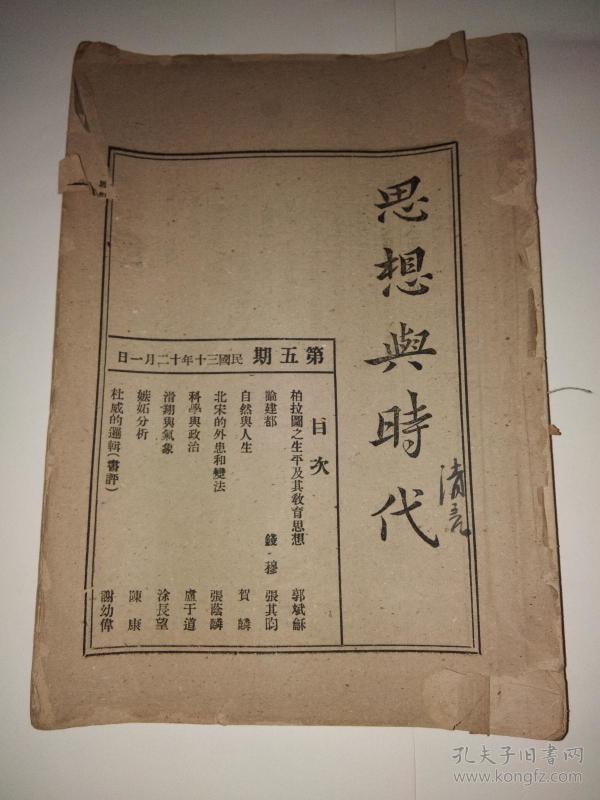 思想與時代
清言
第五期 民國三十年十二月一日
目次
柏拉圖之生平及其敎育思想 郭斌龢
論建都 錢穆 張其昀
自然與人生 賀麟
北宋的外患和變法 張蔭麟
科學與政治 盧于道
滑翔與氣象 涂長望
嫉妬分析 陳康
杜威的邏輯(書評) 謝幼偉
孔夫子旧书网
www.kongfz.com